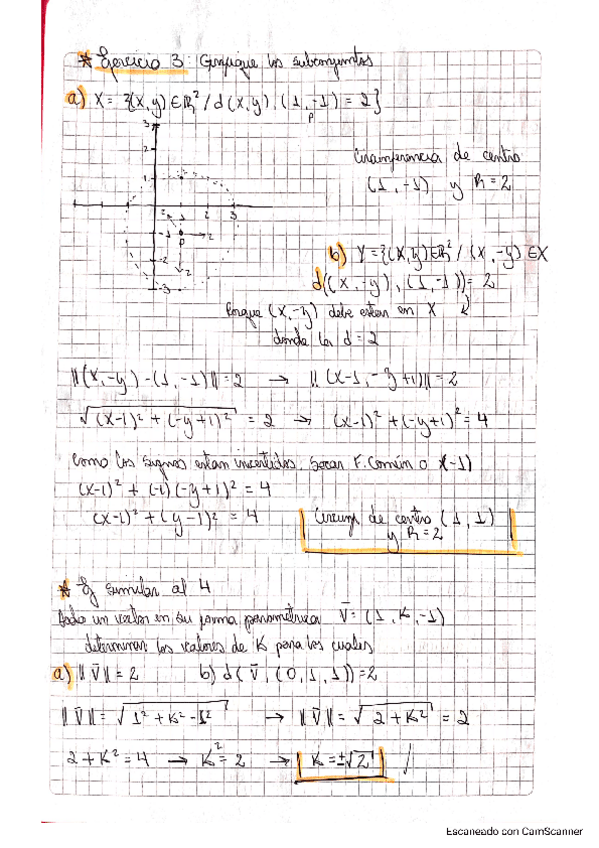 * Ejercicio 3: Grafique los subconjuntos
a) X = {(X,y) ∈ R² / d(X,y), (1,-1) = 2}
P
3
2
1
1 2 3
-1
P
2
-2
2
-3
Circunferencia de centro
(1,-1) y R=2
b) Y = {(X,y) ∈ R² / (X,-y) ∈ X
d((X,-y), (1,-1)) = 2
Porque (X,-y) debe estar en X
donde la d = 2
||(X,-y) - (1,-1)|| = 2 → || (X-1, -y+1)|| = 2
√(X-1)² + (-y+1)² = 2 → (X-1)² + (-y+1)² = 4
Como los signos estan invertidos. Sacar F. Común o X(-1)
(X-1)² + (-1)(-y+1)² = 4
(X-1)² + (y-1)² = 4
Circunf de centro (1,1)
y R=2
* Ej similar al 4
Dado un vector en su forma parametrica V̄ = (1, K, -1)
determinar los valores de K para los cuales
a) ||V̄|| = 2 b) d(V̄, (0,1,1)) = 2
||V̄|| = √1² + K² - 1² → ||V̄|| = √2 + K² = 2
2 + K² = 4 → K² = 2 → K = ±√2 /
Escaneado con CamScanner